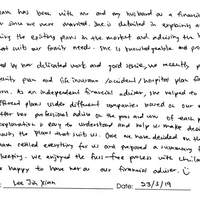 has been with me and my husband as a financia
since we were married. She is detailed in explaining a
the existing plans in the market and advising the
suit our family needs. She is knowledgeable and pro
by her delicated work and good service, we recently p
plan and life insurance / accident / hospital plan f
As an independent financial adviser, she helped to
different plans under different companies based on our
her professional advise on the pros and cons of each p
explanation is easy to understand and help us make deci
the plans that suit us. Once we have decided on the
really everything for us and prepared a summary f
We enjoyed the fuss-free process with
happy to have her as our financial adviser.
Lee Jia Xian Date: 23/5/19